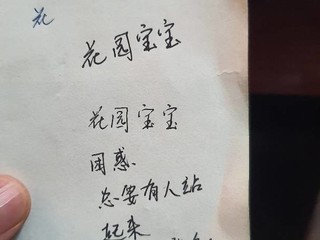 花
花园宝宝
花园宝宝
困惑
总要有人站
起来